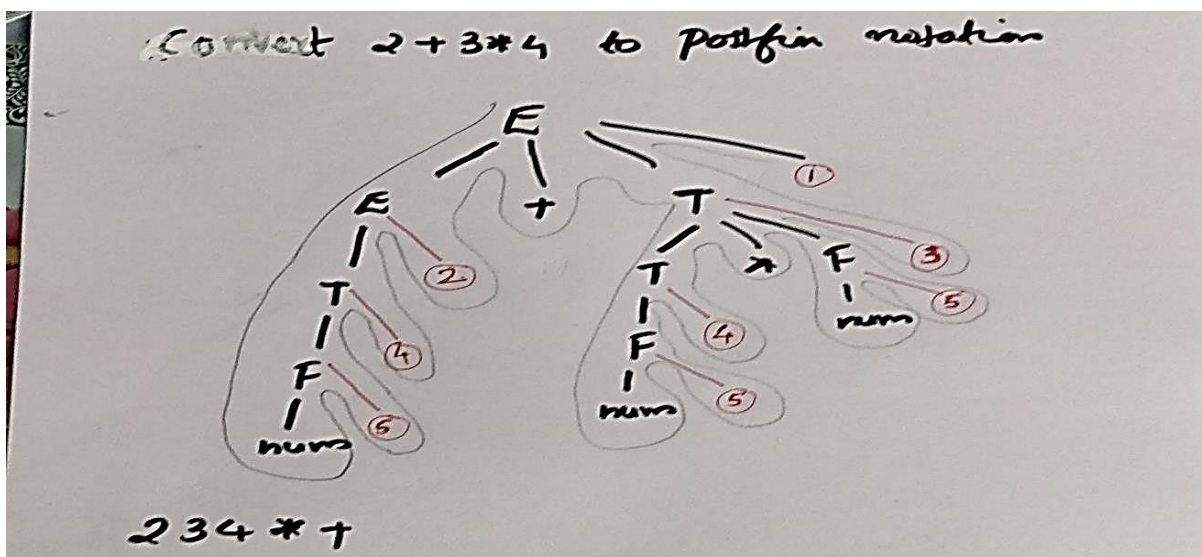 Convert 2+3*4 to Postfin notation
E
①
E + T
② T * F ③
T
④ F ④ num ⑤
F
⑤ num ⑤
num
234*+